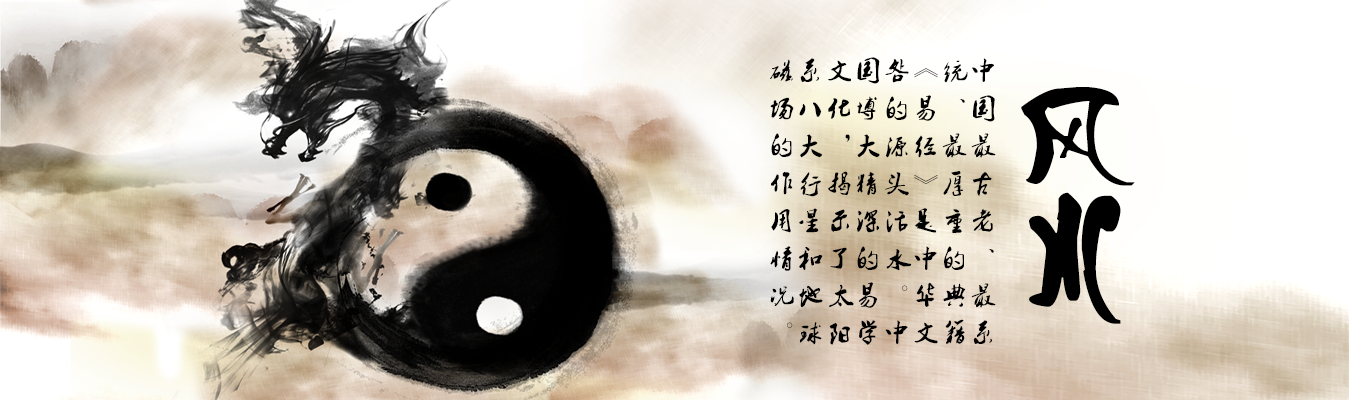 风水
中国最古老、最系
统、最厚重的典籍
《易经》是中华文
咎的源头活水。中
国博大精深的易学
文化，揭示了太阳
系八大行星和地球
磁场的作用情况。